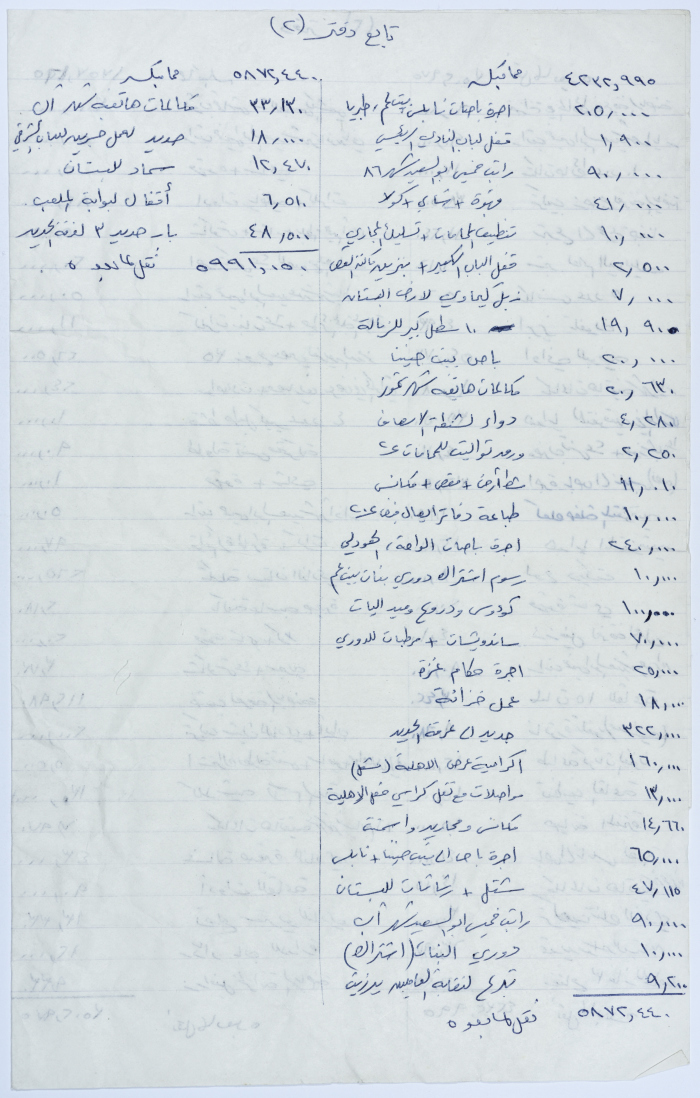 تابع دفتر (٢)
٤٢٣٢,٩٩٥ ماقبله
٢٠٥,٠٠٠ اجرة باصات نابلس، بيت لحم، طبريا
١,٩٠٠ قفل لباب النادي الرئيسي
٩٠,٠٠٠ راتب خميس ابو السعيد شهر ٨٦
٤١,٠٠٠ قهوة + شاي + كولا
١٠,٠٠٠ تنظيف الحمامات + تسليك المجاري
٢,٥٠٠ قفل الباب الكبير + بنزين
٧,٠٠٠ زبل كيماوي لارض البستان
١٩,٩٠٠ ١٠ سطل كبير للزبالة
٢٠,٠٠٠ باص بيت حنينا
٢٠,٦٣٠ مكالمات هاتفية شهر تموز
٤,٢٨٠ دواء لشنطة الاسعاف
٢,٢٥٠ ورق تواليت للحمامات
١١,٠١٠ + مقص + مكانس
١٠,٠٠٠ طباعة دفاتر ايصال قبض
٢٤٠,٠٠٠ اجرة باصات الواحة،
١٠,٠٠٠ رسوم اشتراك دوري بنات بيت لحم
١٠٠,٠٠٠ كؤوس ودروع وميداليات
٧٠,٠٠٠ ساندويشات + مرطبات للدوري
٢٥,٠٠٠ اجرة حكام غزة
١٨,٠٠٠ عمل خزائة
٣٢٢,٠٠٠ حديد الى غرفة الحديد
١٦٠,٠٠٠ اكرامية عرض الاهلية
١٣,٠٠٠ مواصلات مع نقل كراسي حفل الاهلية
١٤,٦٦٠ مكانس ومجاريد واسمنت
٦٥,٠٠٠ اجرة باص الى بيت حنينا + نابلس
٤٧,١١٥ شتل + رشاشات للبستان
٩٠,٠٠٠ راتب خميس ابو السعيد شهر آب
١٠,٠٠٠ دوري البنات (اشتراك)
٩,٢٠٠ تبرع لنقابة العاملين بيرزيت
٥٨٧٢,٤٤٠ نقل لما بعده
٥٨٧٢,٤٤٠ ماقبله
٣٣,١٣٠ مكالمات هاتفية شهر آب
١٨,٠٠٠ حديد لعمل
١٢,٤٧٠ سماد للبستان
٦,٥١٠ أقفال لبوابة الملعب
٤٨,٥٠٠ بار حديد ٣ لغرفة الحديد
٥٩٩١,٠٥٠ نقل لما بعده